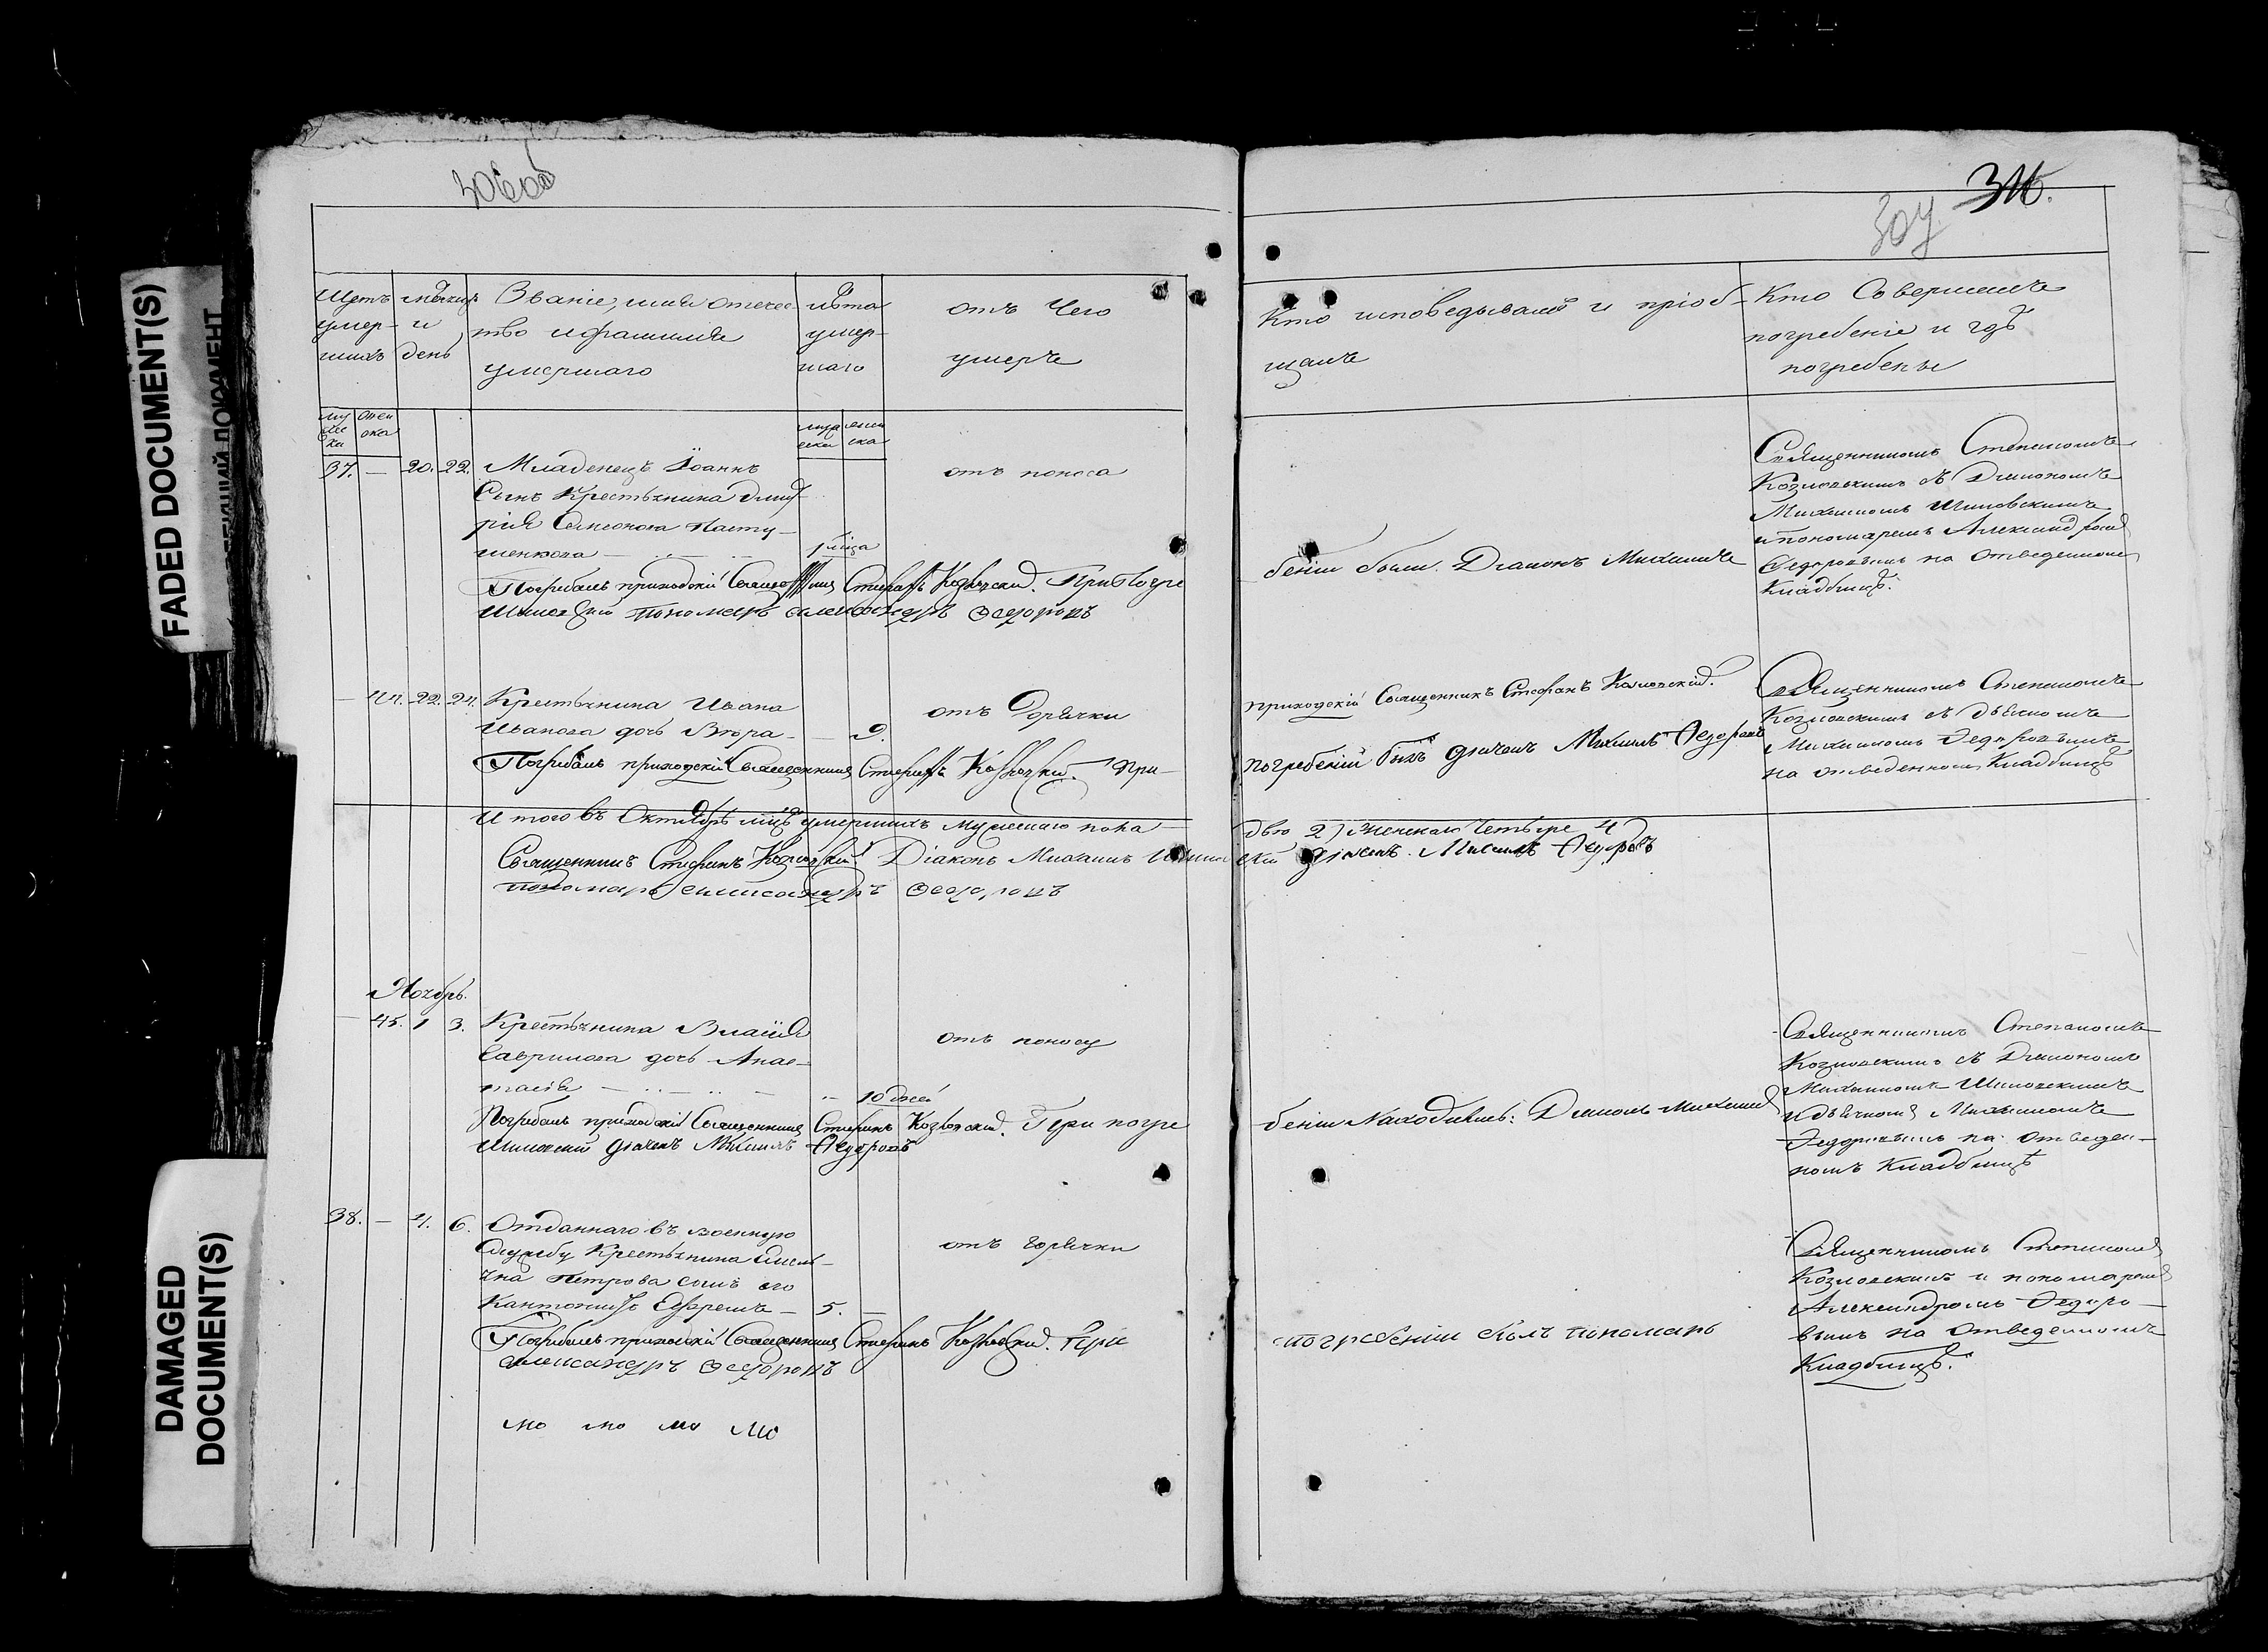 FADED DOCUMENT(S)
DAMAGED
DOCUMENT(S)
306об
316.
307
Щетъ
умер-
шихъ
мѣсяцъ
и
день
Званіе, имя отечес
тво и фамилія
умершаго
лѣта
умер-
шаго
отъ чего
умерче
Кто исповедывалъ и пріоб-
щалъ
Кто Совершалъ
погребеніе и гдѣ
погребены
37. — 20. 22. Младенецъ Іоаннъ
Сынъ Крестьянина Дмит
рія Самсонова Пасту-
шенкова — 1 мѣца
отъ поноса
Погребалъ приходскій Священникъ Стефанъ Козловскій. При погре
беніи были. Діаконъ Михаилъ
Шиловскій Пономарь Александръ Федоровъ
Священникомъ Степаномъ
Козловскимъ съ Діакономъ
Михаиломъ Шиловскимъ
и пономаремъ Александромъ
Федоровымъ на отведенномъ
Кладбищѣ.
— 44. 22. 24. Крестьянина Ивана
Иванова дочь Вѣра — 9.
отъ Горячки
Погребалъ приходскій Священникъ Стефанъ Козловскій. При
приходскій Священникъ Стефанъ Козловскій.
погребеніи былъ дьячокъ Михаилъ Федоровъ
Священникомъ Степаномъ
Козловскимъ съ дьячкомъ
Михаиломъ Федоровымъ
на отведенномъ Кладбищѣ
Итого въ Октябрѣ мцѣ умершихъ мужескаго пола
двое 2, женскаго четыре 4
Священникъ Стефанъ Козловскій Діаконъ Михаилъ Шилов
скій Дьячекъ. Михаилъ Федоровъ
пономарь Александръ Федоровъ
Ноябрь.
— 45. 1 3. Крестьянина Власія
Гаврилова дочь Анас-
тасія — 10 дней
отъ поносу
Погребалъ приходскій Священникъ Стефанъ Козловскій. При погре
беніи Находились: Діаконъ Михаилъ
Шиловскій дьячекъ Михаилъ Федоровъ
Священникомъ Степаномъ
Козловскимъ съ Діакономъ
Михаиломъ Шиловскимъ
и дьячкомъ Михаиломъ
Федоровымъ на отведен-
номъ Кладбищѣ
38. — 4. 6. Отданнаго въ военную
Службу Крестьянина Емель-
яна Петрова сынъ его
Кантонистъ Ефремъ — 5. —
отъ горячки
Погребалъ приходскій Священникъ Стефанъ Козловскій. При
погребеніи былъ пономарь
Александръ Федоровъ
Священникомъ Степаномъ
Козловскимъ и пономаремъ
Александромъ Федоро-
вымъ на отведенномъ
Кладбищѣ.